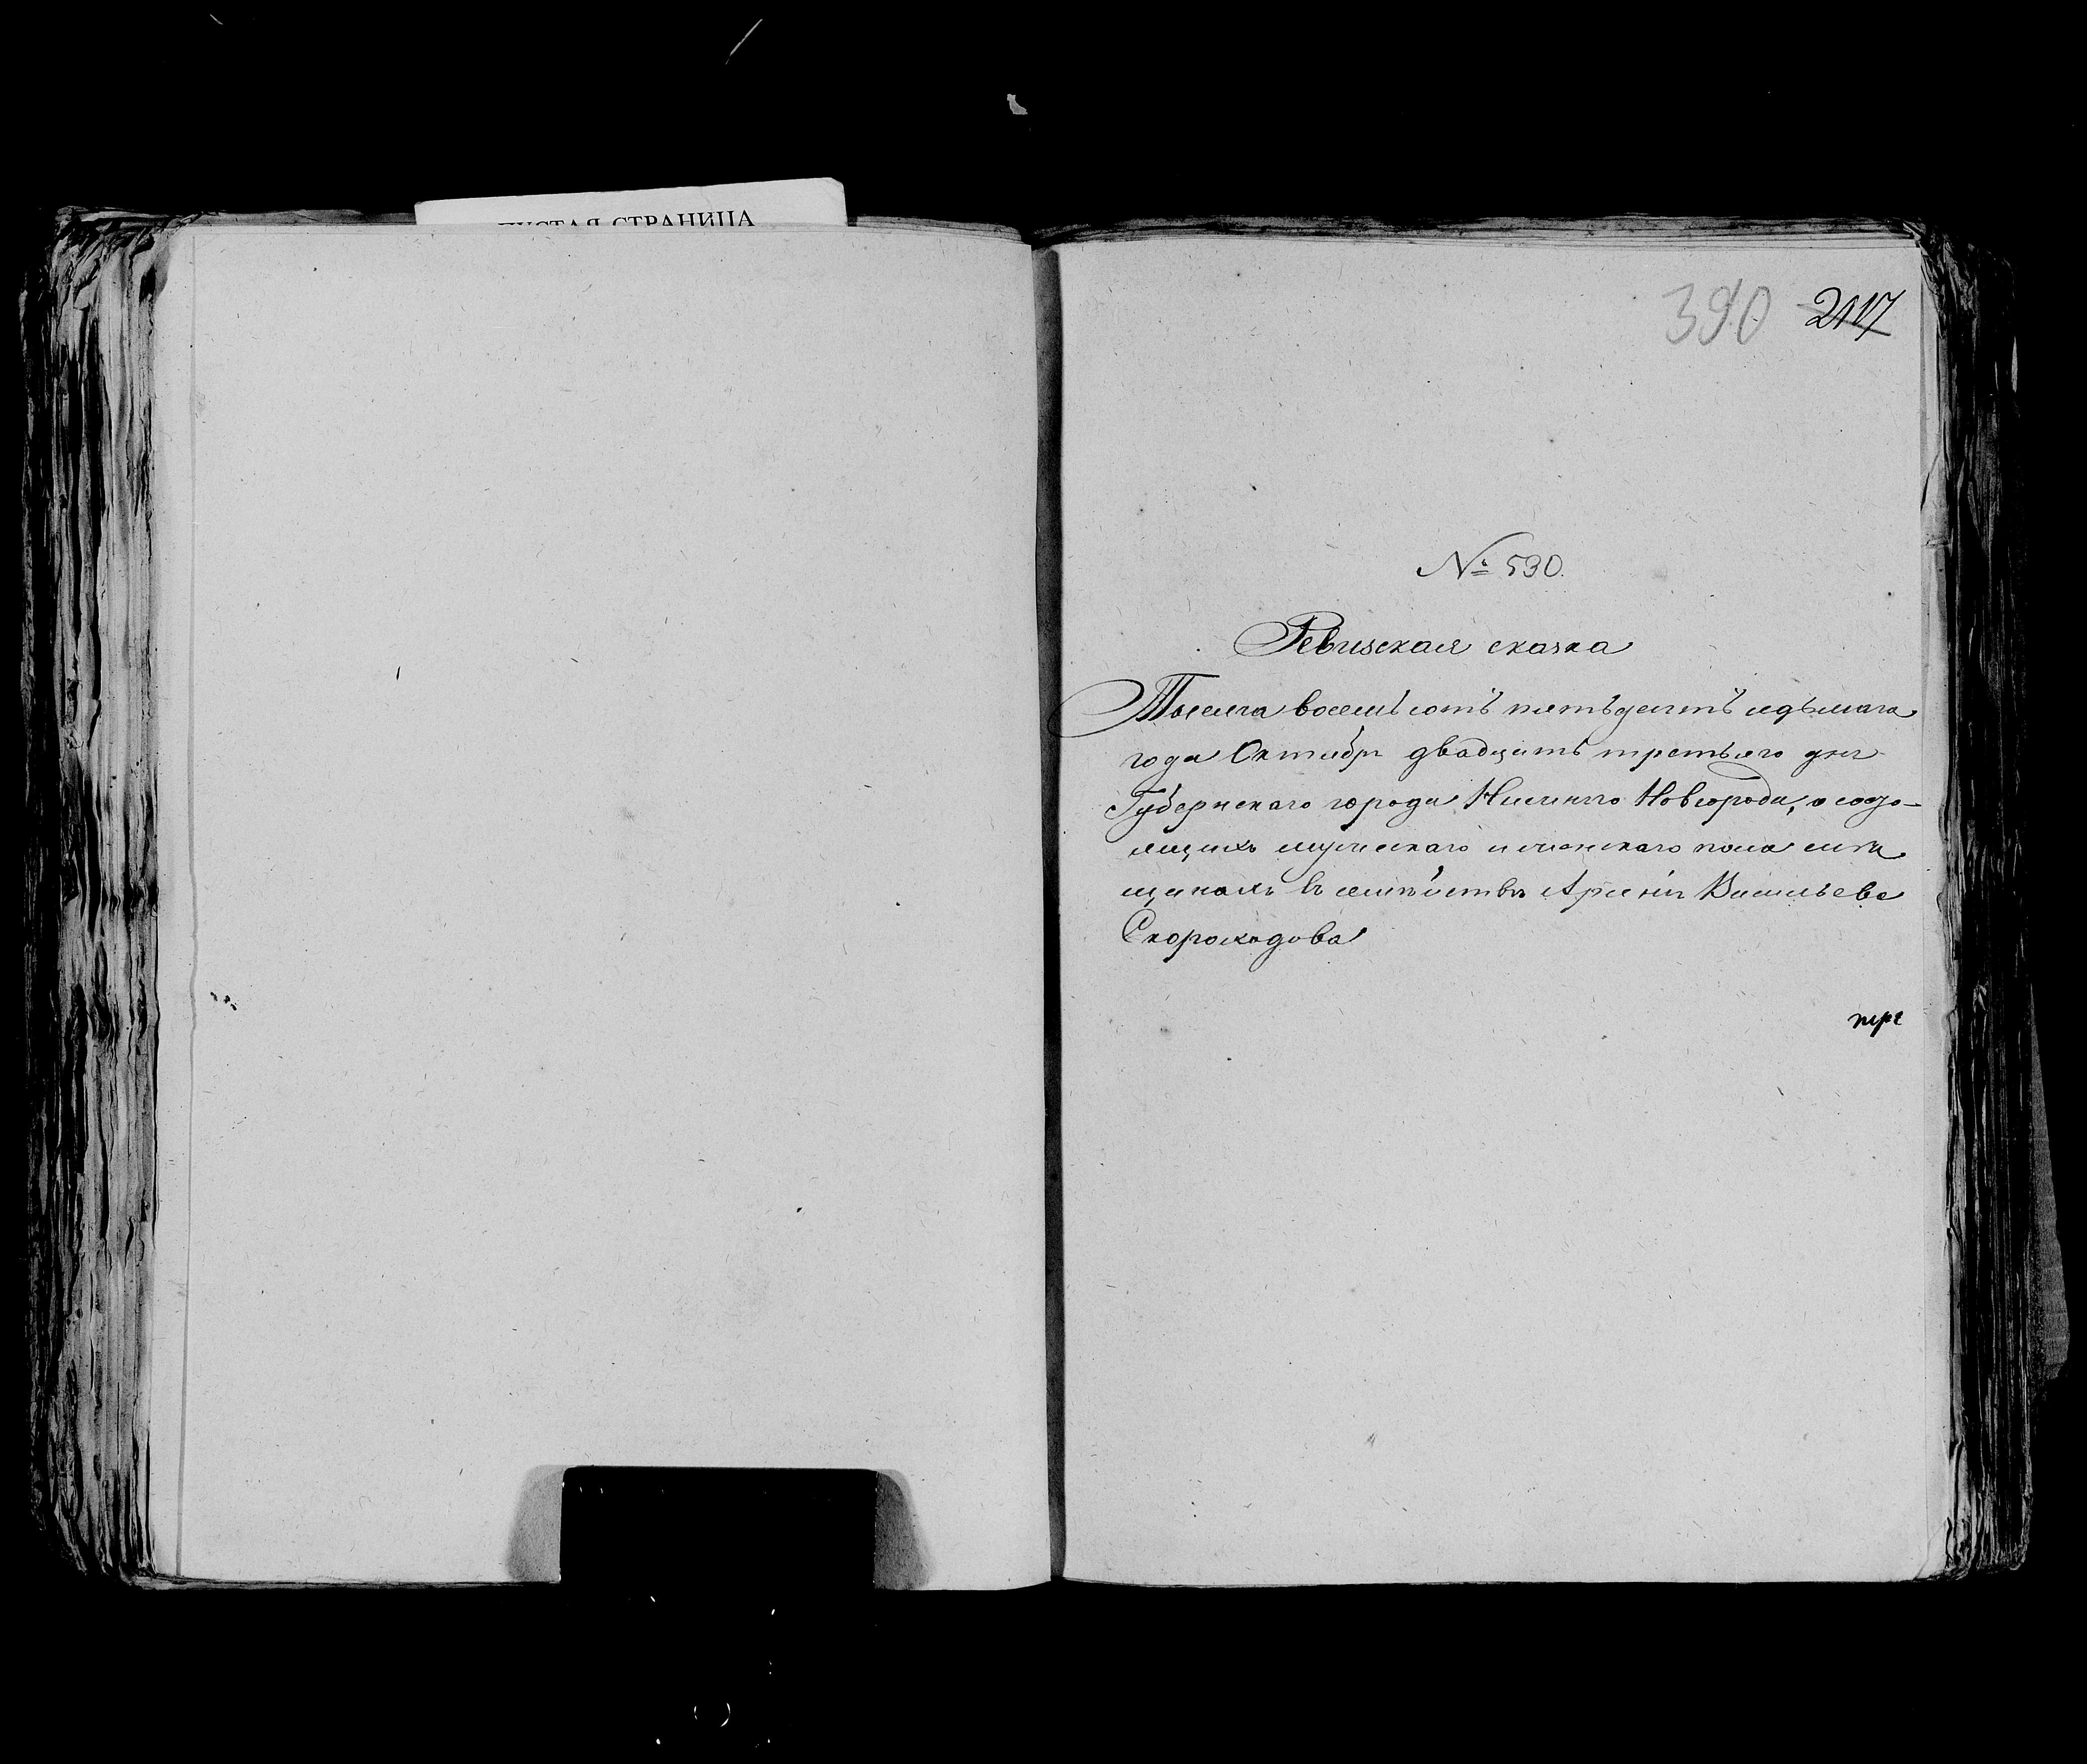 ПУСТАЯ СТРАНИЦА
390 2117
№ 530.
Ревизская сказка
Тысяча восемьсотъ пятьдесятъ седьмаго
года Октября двадцать третьяго дня
Губернскаго города Нижняго Новгорода, о состо-
ящихъ мужескаго и женскаго пола мѣ
щанахъ въ семѣйствѣ Арсенія Васильева
Скороходова
тре